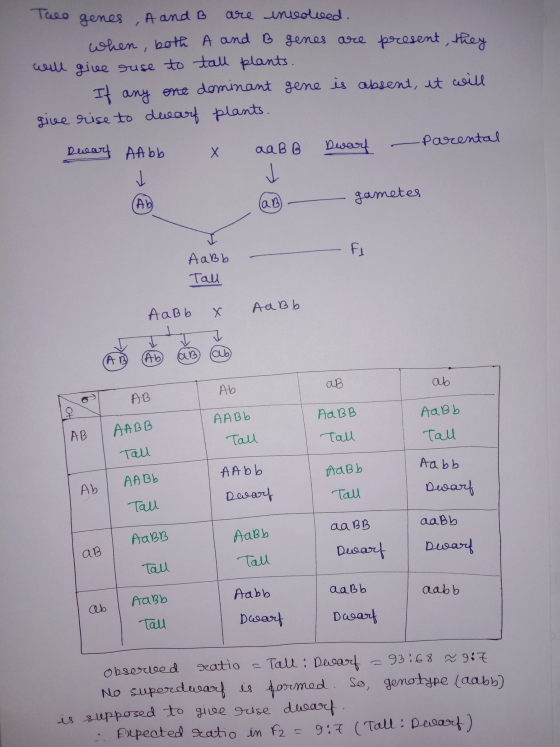 Two genes, A and B are involved.
When, both A and B genes are present, they
will give rise to tall plants.
If any one dominant gene is absent, it will
give rise to dwarf plants.
Dwarf AAbb x aaBB Dwarf — Parental
Ab aB — gametes
AaBb — F1
Tall
AaBb x AaBb
AB Ab aB ab
♀ ♂ AB Ab aB ab
AB AABB AABb AaBB AaBb
Tall Tall Tall Tall
Ab AABb AAbb AaBb Aabb
Tall Dwarf Tall Dwarf
aB AaBB AaBb aaBB aaBb
Tall Tall Dwarf Dwarf
ab AaBb Aabb aaBb aabb
Tall Dwarf Dwarf
Observed ratio = Tall : Dwarf = 93:68 ≈ 9:7
No superdwarf is formed. So, genotype (aabb)
is supposed to give rise dwarf.
∴ Expected ratio in F2 = 9:7 (Tall : Dwarf)